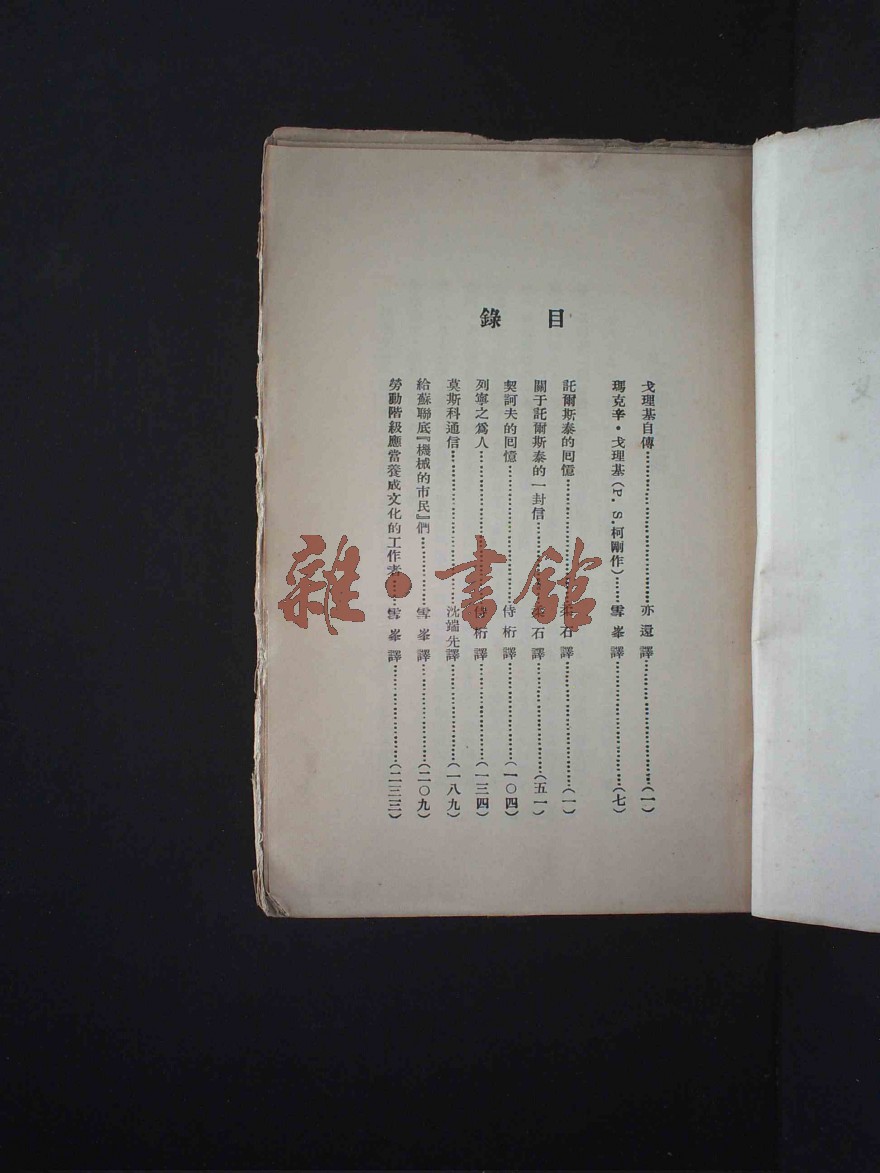 目錄
戈理基自傳……亦還譯……(一)
瑪克辛・戈理基(P. S.柯剛作)……雪峯譯……(七)
託爾斯泰的囘憶……柔石譯……(一)
關于託爾斯泰的一封信……柔石譯……(五一)
契訶夫的囘憶……侍桁譯……(一〇四)
列寧之爲人……侍桁譯……(一三四)
莫斯科通信……沈端先譯……(一八九)
給蘇聯底『機械的市民』們……雪峯譯……(二〇九)
勞動階級應當養成文化的工作者……雪峯譯……(二三三)
雜・書館